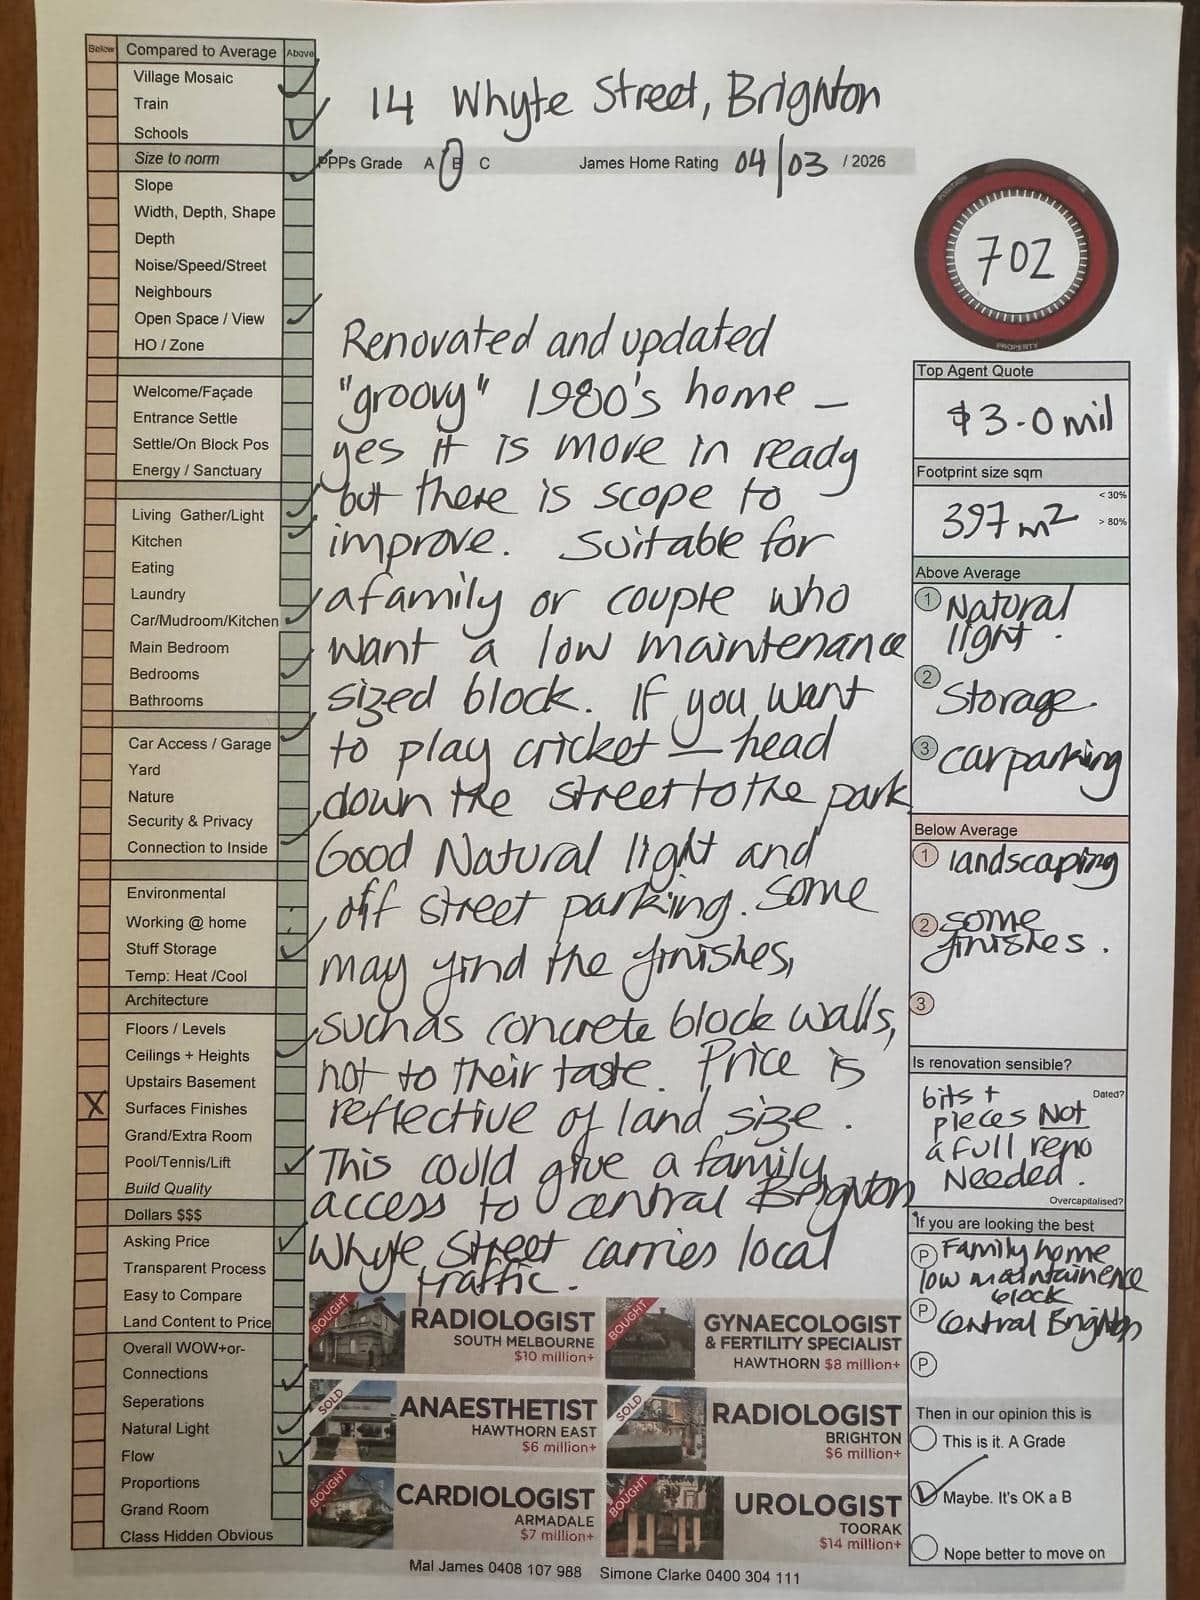 Below Compared to Average Above
Village Mosaic
Train
Schools
Size to norm
Slope
Width, Depth, Shape
Depth
Noise/Speed/Street
Neighbours
Open Space / View
HO / Zone
Welcome/Façade
Entrance Settle
Settle/On Block Pos
Energy / Sanctuary
Living Gather/Light
Kitchen
Eating
Laundry
Car/Mudroom/Kitchen
Main Bedroom
Bedrooms
Bathrooms
Car Access / Garage
Yard
Nature
Security & Privacy
Connection to Inside
Environmental
Working @ home
Stuff Storage
Temp: Heat /Cool
Architecture
Floors / Levels
Ceilings + Heights
Upstairs Basement
X Surfaces Finishes
Grand/Extra Room
Pool/Tennis/Lift
Build Quality
Dollars $$$
Asking Price
Transparent Process
Easy to Compare
Land Content to Price
Overall WOW+or-
Connections
Seperations
Natural Light
Flow
Proportions
Grand Room
Class Hidden Obvious
14 Whyte Street, Brighton
PPPs Grade A B C James Home Rating 04/03 / 2026
Renovated and updated
"groovy" 1980's home –
yes it is move in ready
but there is scope to
improve. Suitable for
a family or couple who
want a low maintenance
sized block. If you want
to play cricket – head
down the street to the park
Good Natural light and
off street parking. Some
may find the finishes,
such as concrete block walls,
not to their taste. Price is
reflective of land size.
This could give a family
access to central Brighton
Whyte Street carries local
traffic.
702
PROPERTY
Top Agent Quote
$3.0 mil
Footprint size sqm
< 30%
397 m2
> 80%
Above Average
1 Natural
light.
2 Storage.
3 carparking
Below Average
1 landscaping
2 some
finishes.
3
Is renovation sensible?
Dated?
bits +
pieces Not
a full reno
Needed.
Overcapitalised?
If you are looking the best
P Family home
low maintainence
block
P Central Brighton
P
Then in our opinion this is
This is it. A Grade
Maybe. It's OK a B
Nope better to move on
BOUGHT
RADIOLOGIST
SOUTH MELBOURNE
$10 million+
BOUGHT
GYNAECOLOGIST
& FERTILITY SPECIALIST
HAWTHORN $8 million+
SOLD
ANAESTHETIST
HAWTHORN EAST
$6 million+
SOLD
RADIOLOGIST
BRIGHTON
$6 million+
BOUGHT
CARDIOLOGIST
ARMADALE
$7 million+
BOUGHT
UROLOGIST
TOORAK
$14 million+
Mal James 0408 107 988 Simone Clarke 0400 304 111